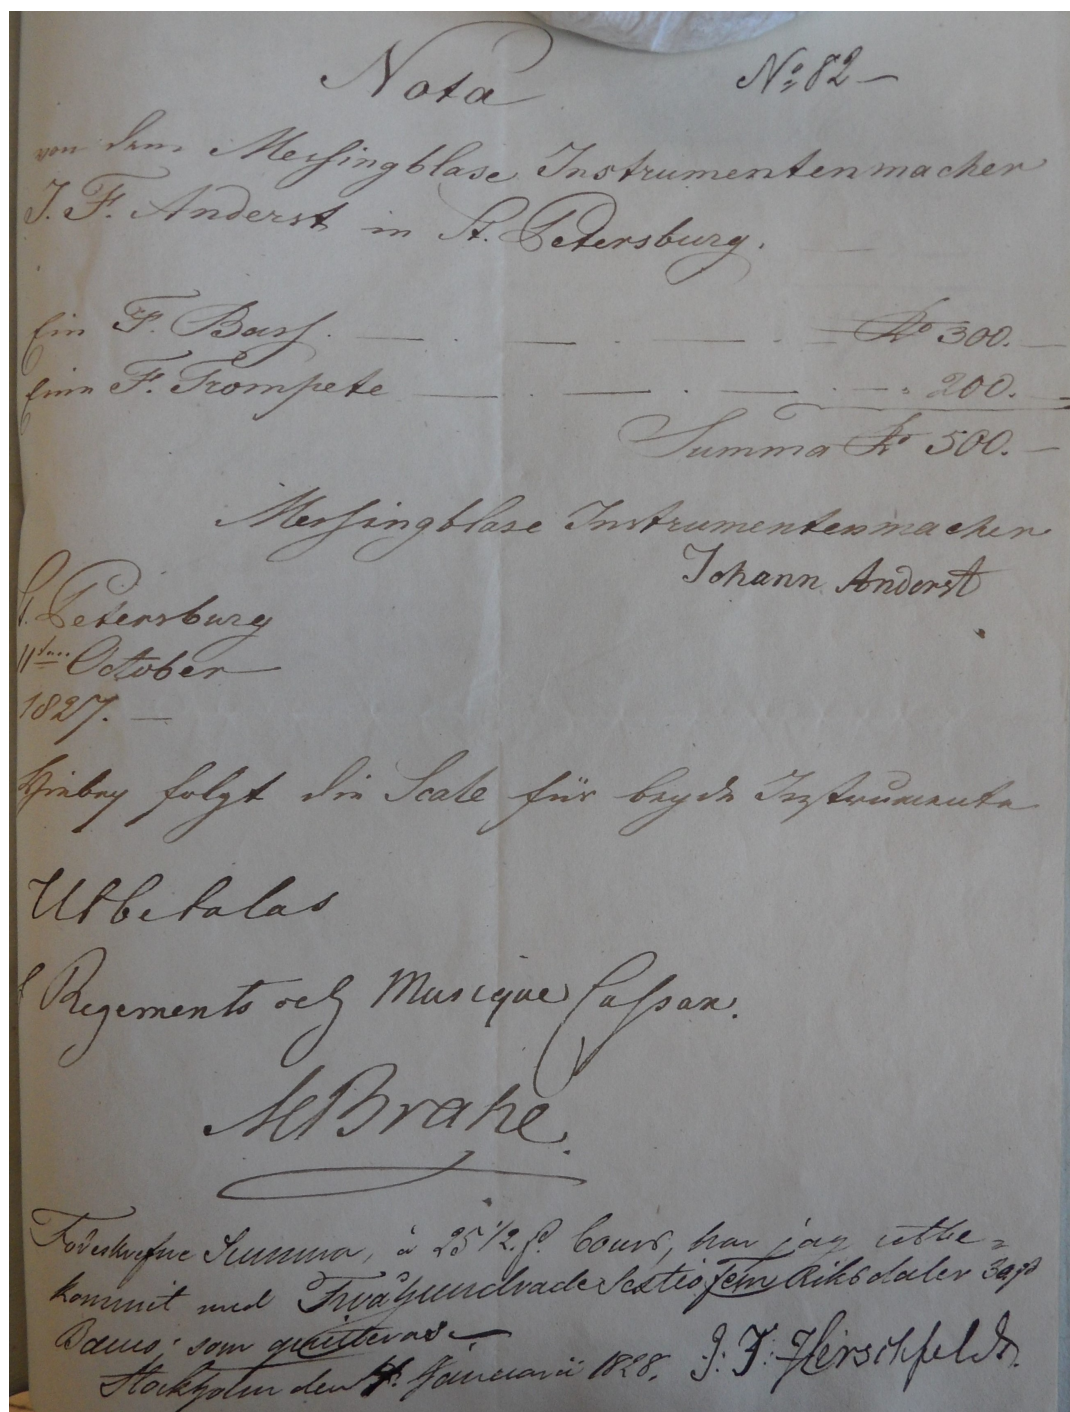 Nota
No: 82 —
von dem Messingblase Instrumentenmacher
J. F. Anderst in St. Petersburg.
Ein F. Bass. — . — . — . — Ro 300. —
Eine F. Trompete — . — . — . — " 200. —
Summa Ro 500. —
Messingblase Instrumentenmacher
Johann Anderst
St. Petersburg
11ten October
1827. —
Hiebey folgt die Scale für beyde Instrumente
Utbetalas
Regements och Musique Cassan.
M Brahe.
Summa, à 25 1/2 ß. Cours, har jag utbe=
kommit med Tvåhundrade Sextiofem Riksdaler
Banco; som quitteras —
Stockholm den Januarii 1828. J: F: Hirschfeldt.